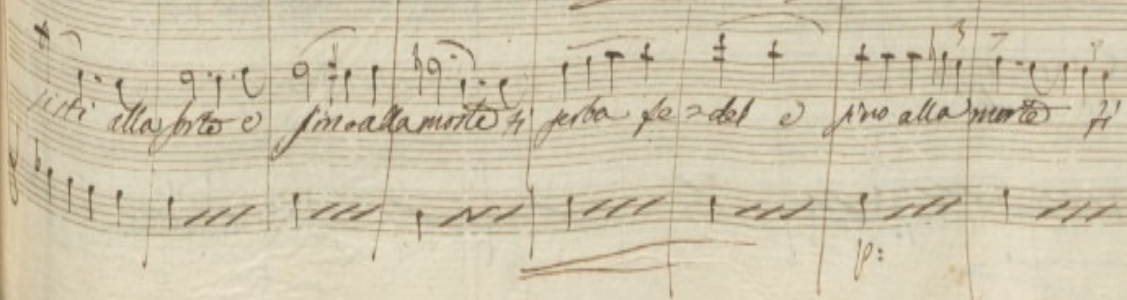 sisti alla sorte e sino alla morte ti serba fe = del e sino alla morte ti
p: